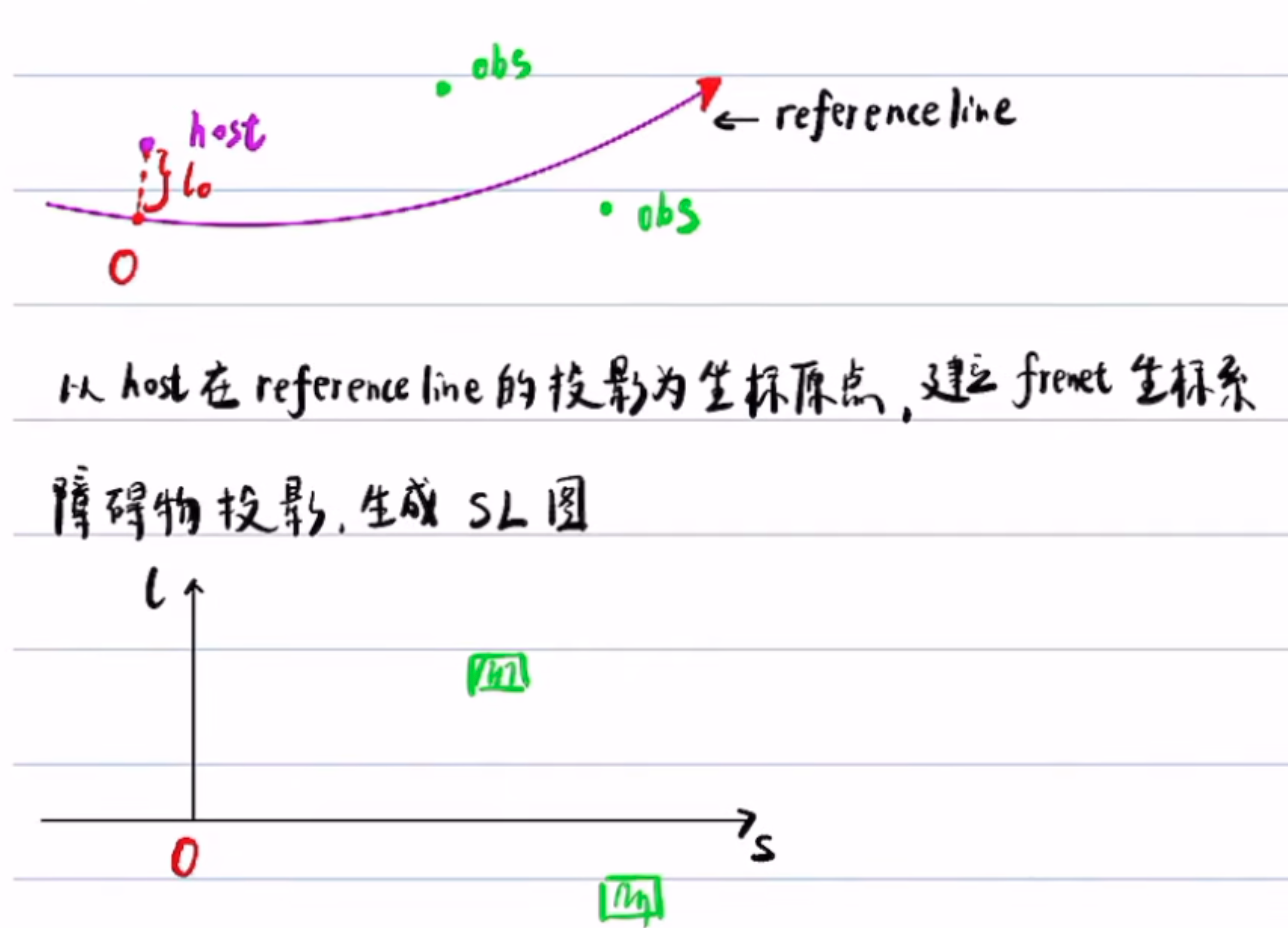 obs
host
← reference line
l₀
obs
0
以 host 在 reference line 的投影为坐标原点,建立 frenet 坐标系
障碍物投影,生成 SL 图
l
0
s